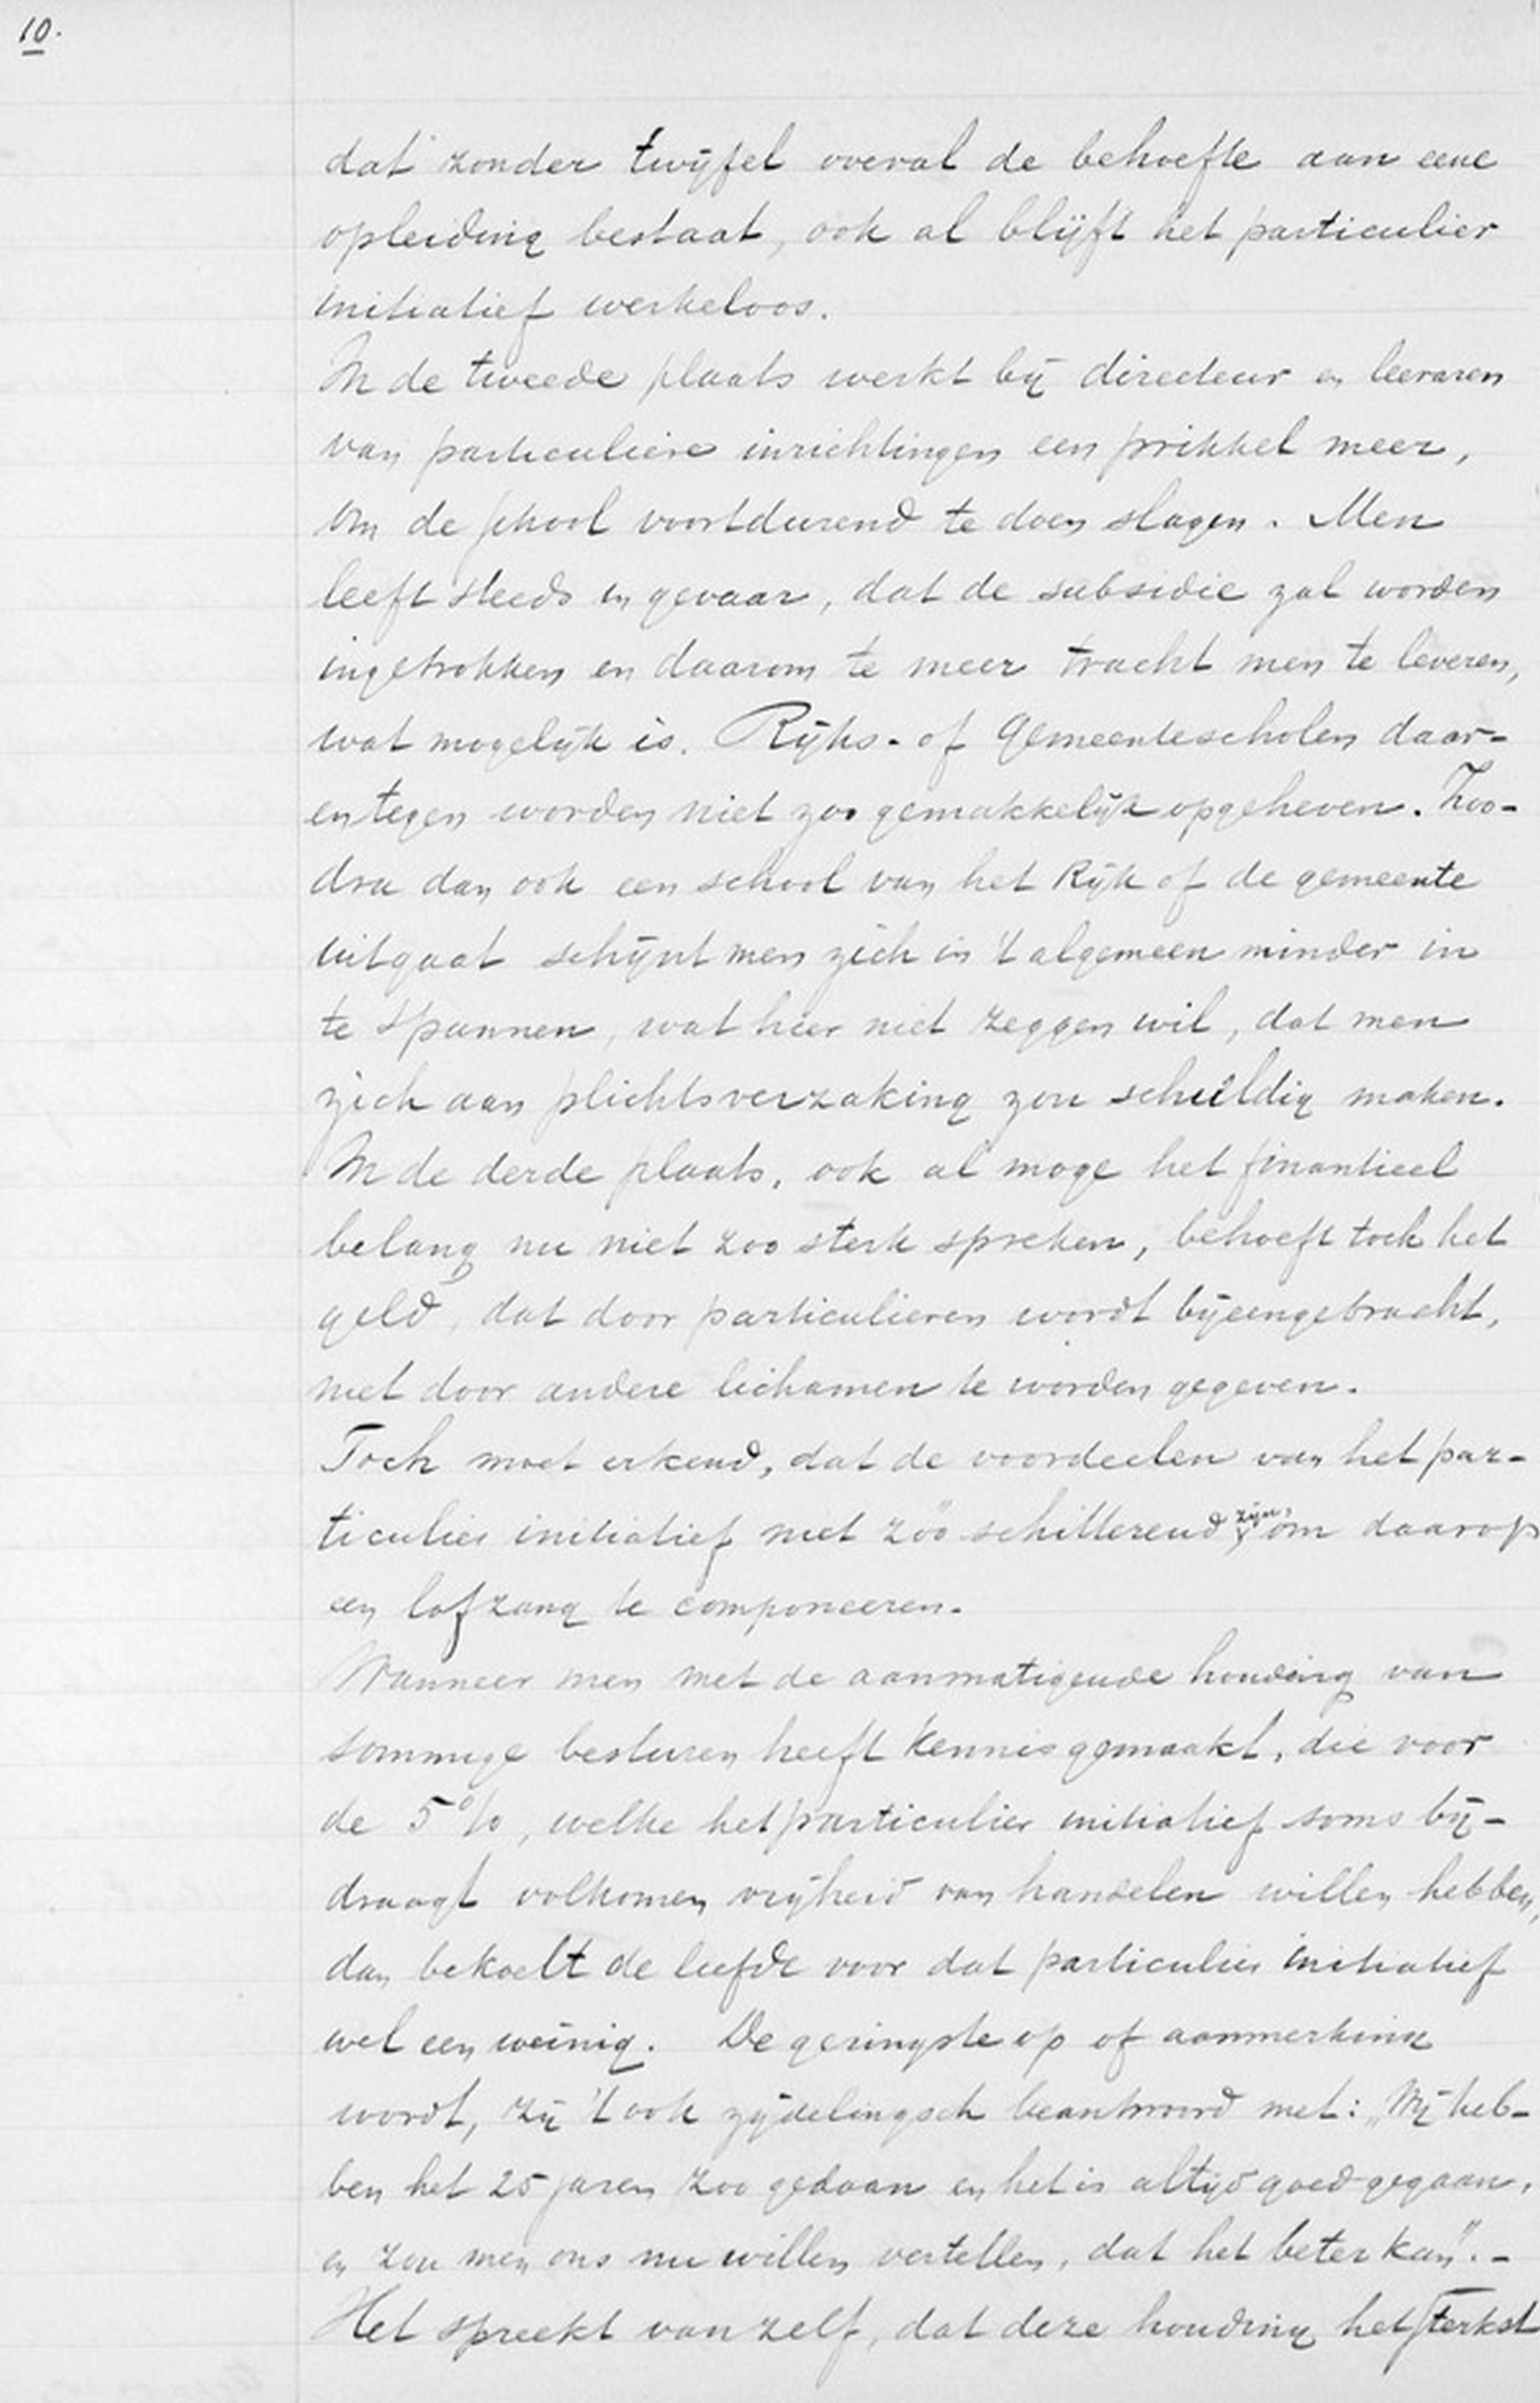 10.
dat zonder twijfel overal de behoefte aan eene
opleiding bestaat, ook al blijft het particulier
initiatief werkeloos.
In de tweede plaats werkt bij directeur en leeraren
van particuliere inrichtingen een prikkel meer,
om de school voortdurend te doen slagen. Men
leeft steeds in gevaar, dat de subsidie zal worden
ingetrokken en daarom te meer tracht men te leveren,
wat mogelijk is. Rijks- of Gemeentescholen daar-
entegen worden niet zoo gemakkelijk opgeheven. Zoo-
dra dan ook een school van het Rijk of de gemeente
uitgaat schijnt men zich in 't algemeen minder in
te spannen, wat hier niet zeggen wil, dat men
zich aan plichtsverzaking zou schuldig maken.
In de derde plaats, ook al moge het finantieel
belang nu niet zoo sterk spreken, behoeft toch het
geld, dat door particulieren wordt bijeengebracht,
niet door andere lichamen te worden gegeven.
Toch moet erkend, dat de voordeelen van het par-
ticulier initiatief niet zóó schitterend zijn om daarop
een lofzang te componeeren.
Wanneer men met de aanmatigende houding van
sommige besturen heeft kennis gemaakt, die voor
de 5%, welke het particulier initiatief soms bij-
draagt volkomen vrijheid van handelen willen hebben,
dan bekoelt de liefde voor dat particulier initiatief
wel een weinig. De geringste op of aanmerking
wordt, zij 't ook zijdelingsch beantwoord met: „Wij heb-
ben het 25 jaren zoo gedaan en het is altijd goed gegaan,
en zou men ons nu willen vertellen, dat het beter kan". -
Het spreekt van zelf, dat deze houding het sterkst